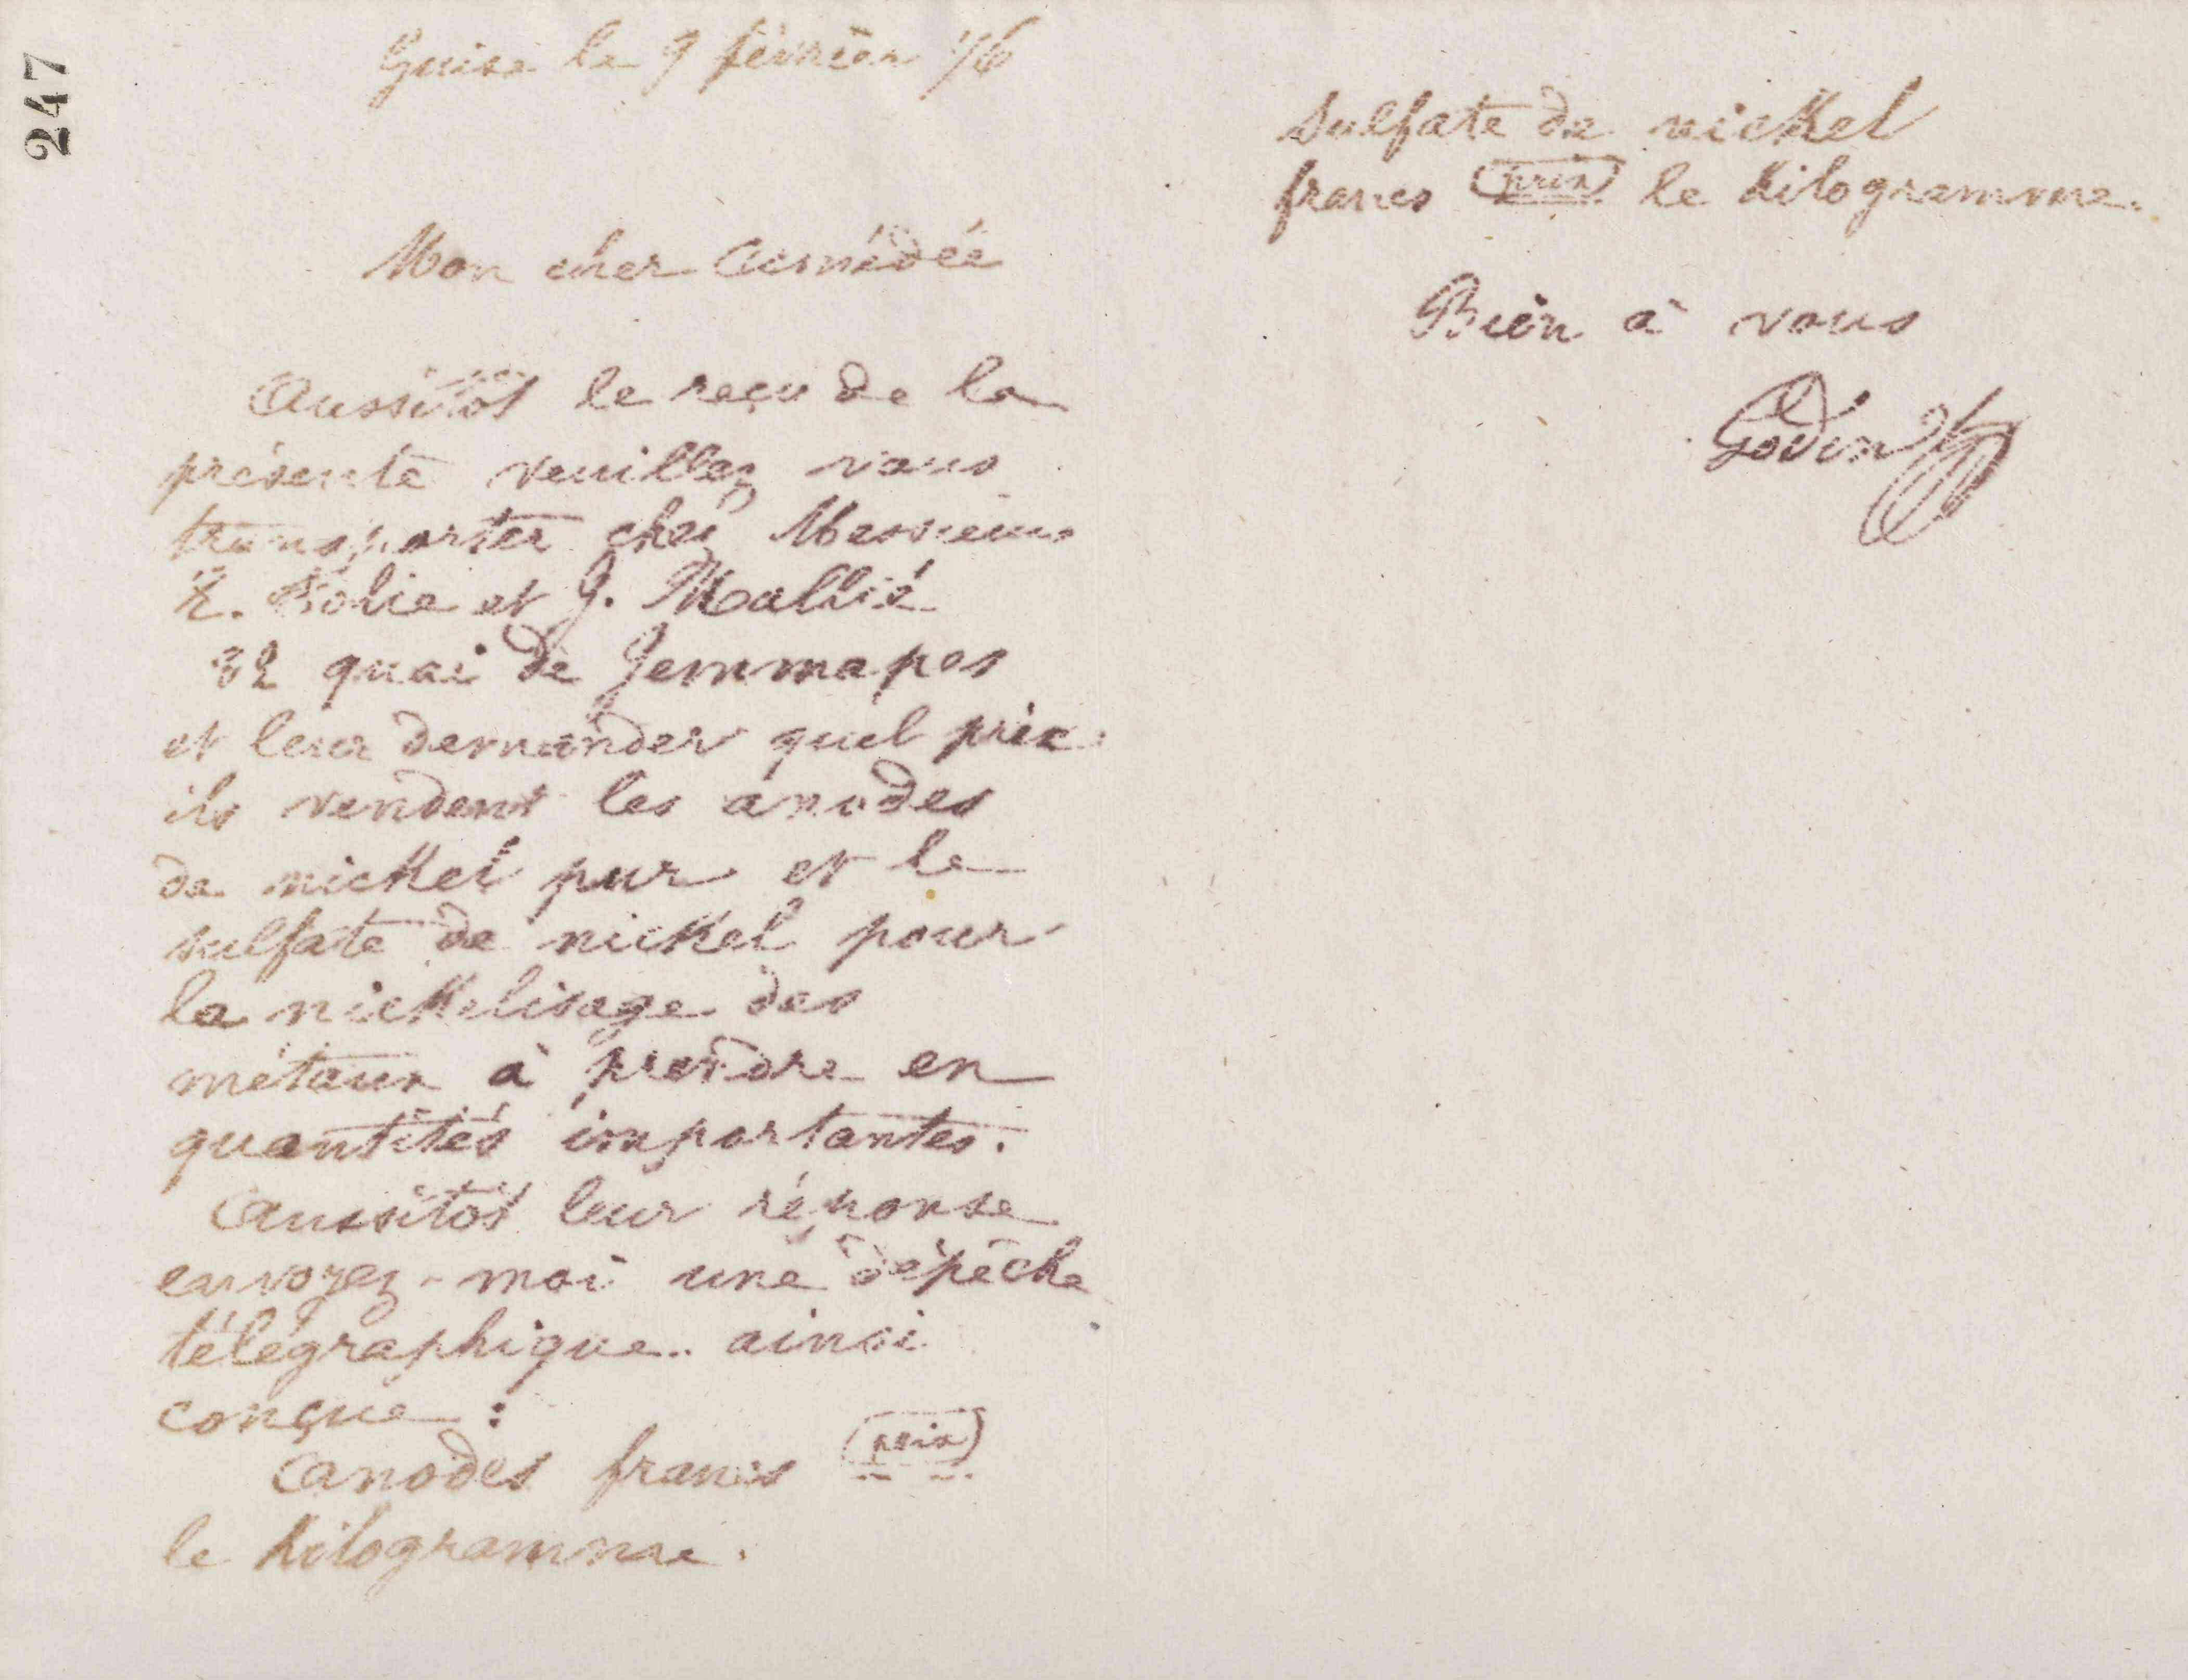 247
Guise le 9 février 76
Mon cher Amédée
Aussitôt le reçu de la
présente veuillez vous
transporter chez Messieurs
et G. Mallié
32 quai de Jemmapes
et leur demander quel prix
ils vendent les anodes
de nickel pur et le
sulfate de nickel pour
la nickelisage des
métaux à prendre en
quantités importantes.
Aussitôt leur réponse
envoyez-moi une dépêche
télégraphique ainsi
conçue :
Anodes francs (prix)
le kilogramme.
Sulfate de nickel
francs (prix) le kilogramme.
Bien à vous
Godin